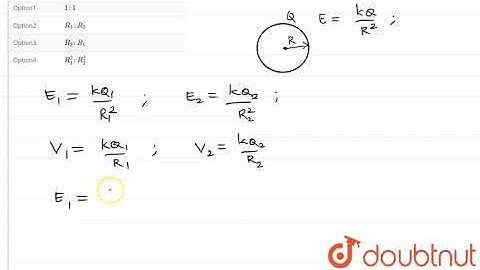 Option1 1 : 1
Option2 R₁ : R₂
Option3 R₂ : R₁
Option4 R₁² : R₂²
Q E = kQ/R² ;
R
E₁ = kQ₁/R₁² ; E₂ = kQ₂/R₂² ;
V₁ = kQ₁/R₁ ; V₂ = kQ₂/R₂
E₁ =
doubtnut